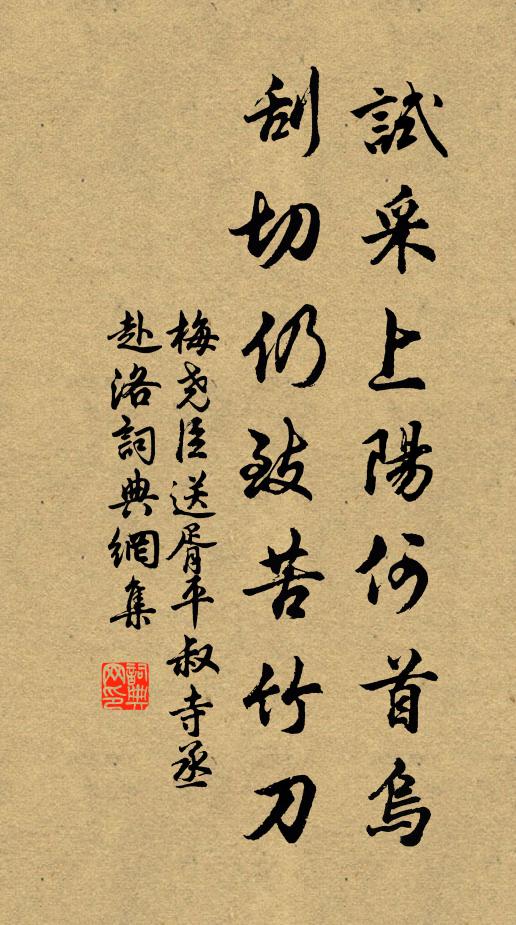 試采上陽何首烏
刮切仍致苦竹刀
梅尧臣送胥平叔寺丞
赴洛詞典網集
詞典
网印